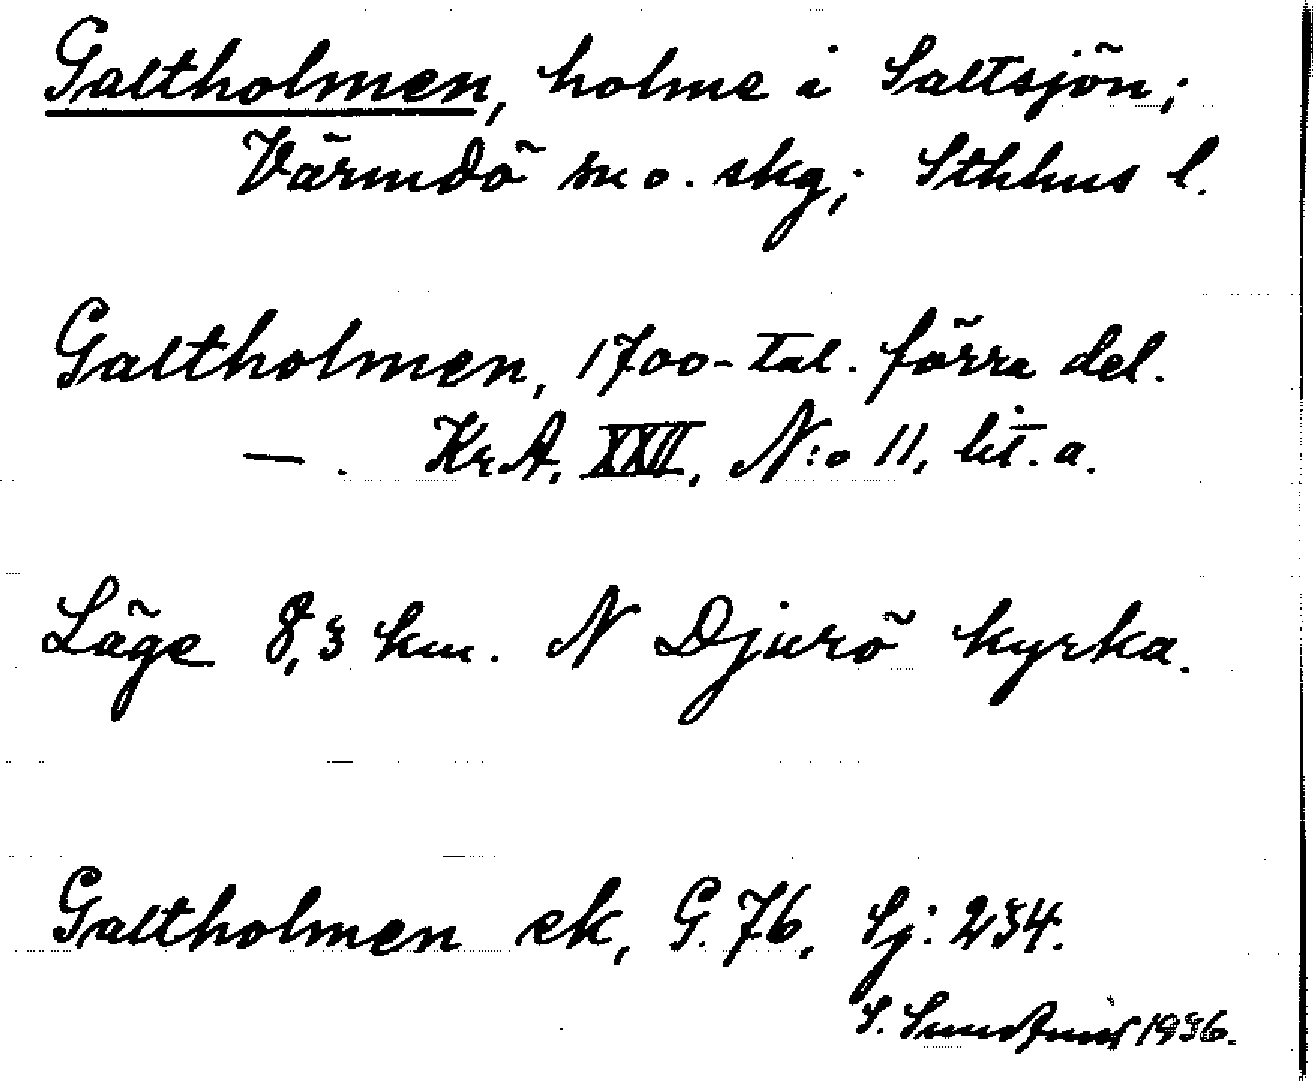 Galtholmen, holme i Saltsjön;
Värmdö m o. skg; Sthlms l.
Galtholmen, 1700-tal. förra del.
— . KrA, XXII, N:o 11, lit. a.
Läge 8,3 km. N Djurö kyrka.
Galtholmen ek, G. 76, Sj: 234.
S. 1936.